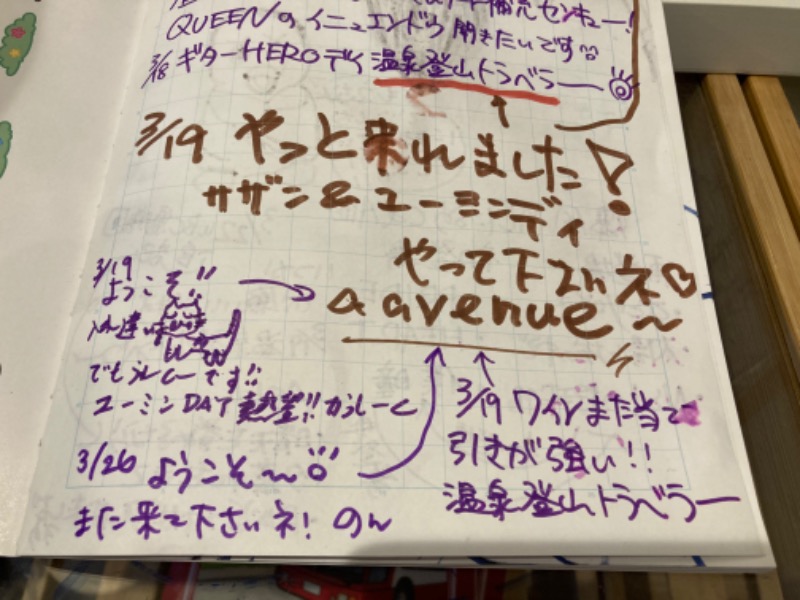 補充センキュー!
QUEENのイニュエンドウ聞きたいです
3/18 ギターHEROデイ 温泉登山トラベラー
3/19 やっと来れました!
サザン&ユーミンディ
やって下さいネ♡
a avenue~
3/19
ようこそ!!
でもうれしーです!!
ユーミンDAY 熱望!!
3/26 ようこそ~
また来て下さいネ! のん
3/19 ワインまた当て
引きが強い!!
温泉登山トラベラー